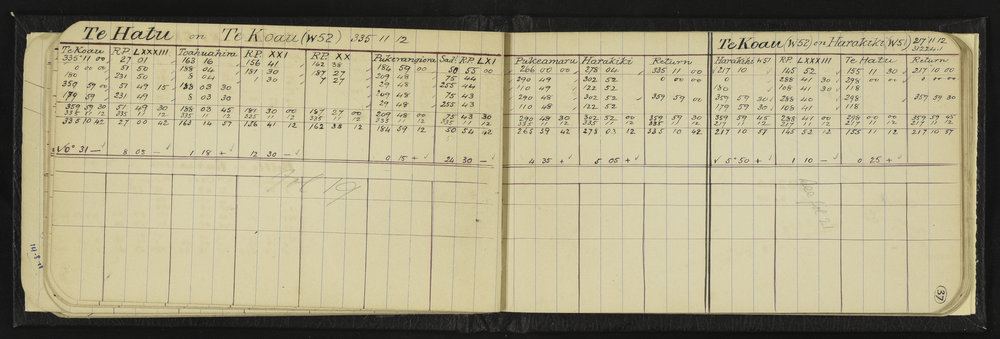 Te Hatu on Te Koau (W52) 335 11 12
Te Koau (W52) on Harakiki (W51) 217 11 12
Te Koau R.P. LXXXIII Toahuahira R.P. XXI R.P. XX Pukerangiora Sad. R.P. LXI Pukeamaru Harakiki Return Harakiki W51 R.P. LXXXIII Te Hatu Return
335 11 00 27 01 163 16 156 41 162 38 184 59 00 50 55 00 266 00 00 278 04 335 11 00 217 10 145 52 155 11 30 217 10 00
0 00 00 51 50 188 04 181 30 187 27 209 48 75 44 290 49 302 52 0 00 00 0 288 41 30 298 0 00 00
180 231 50 8 04 1 30 7 27 29 48 255 44 110 49 122 52 180 108 41 30 118
359 59 00 51 49 15 188 03 30 209 48 75 43 290 48 302 52 359 59 00 359 59 30 288 40 298 359 59 30
179 59 231 49 8 03 30 29 48 255 43 110 48 122 52 179 59 30 108 41 118
359 59 30 51 49 30 188 03 45 181 30 00 187 27 00 209 48 00 75 43 30 290 48 30 302 52 00 359 59 30 359 59 45 288 41 00 298 00 00 359 59 45
335 11 12 335 11 12 335 11 12 335 11 12 335 11 12 335 11 12 335 11 12 335 11 12 335 11 12 335 11 12 217 11 12 217 11 12 217 11 12 217 11 12
335 10 42 27 00 42 163 14 57 156 41 12 162 38 12 184 59 12 50 54 42 265 59 42 278 03 12 335 10 42 217 10 57 145 52 12 155 11 12 217 10 57
√0° 31 – 8 05 – 1 18 + 12 30 – 0 15 + 24 30 – 4 35 + 5 05 + √ 5° 50 + 1 10 – 0 25 +
37